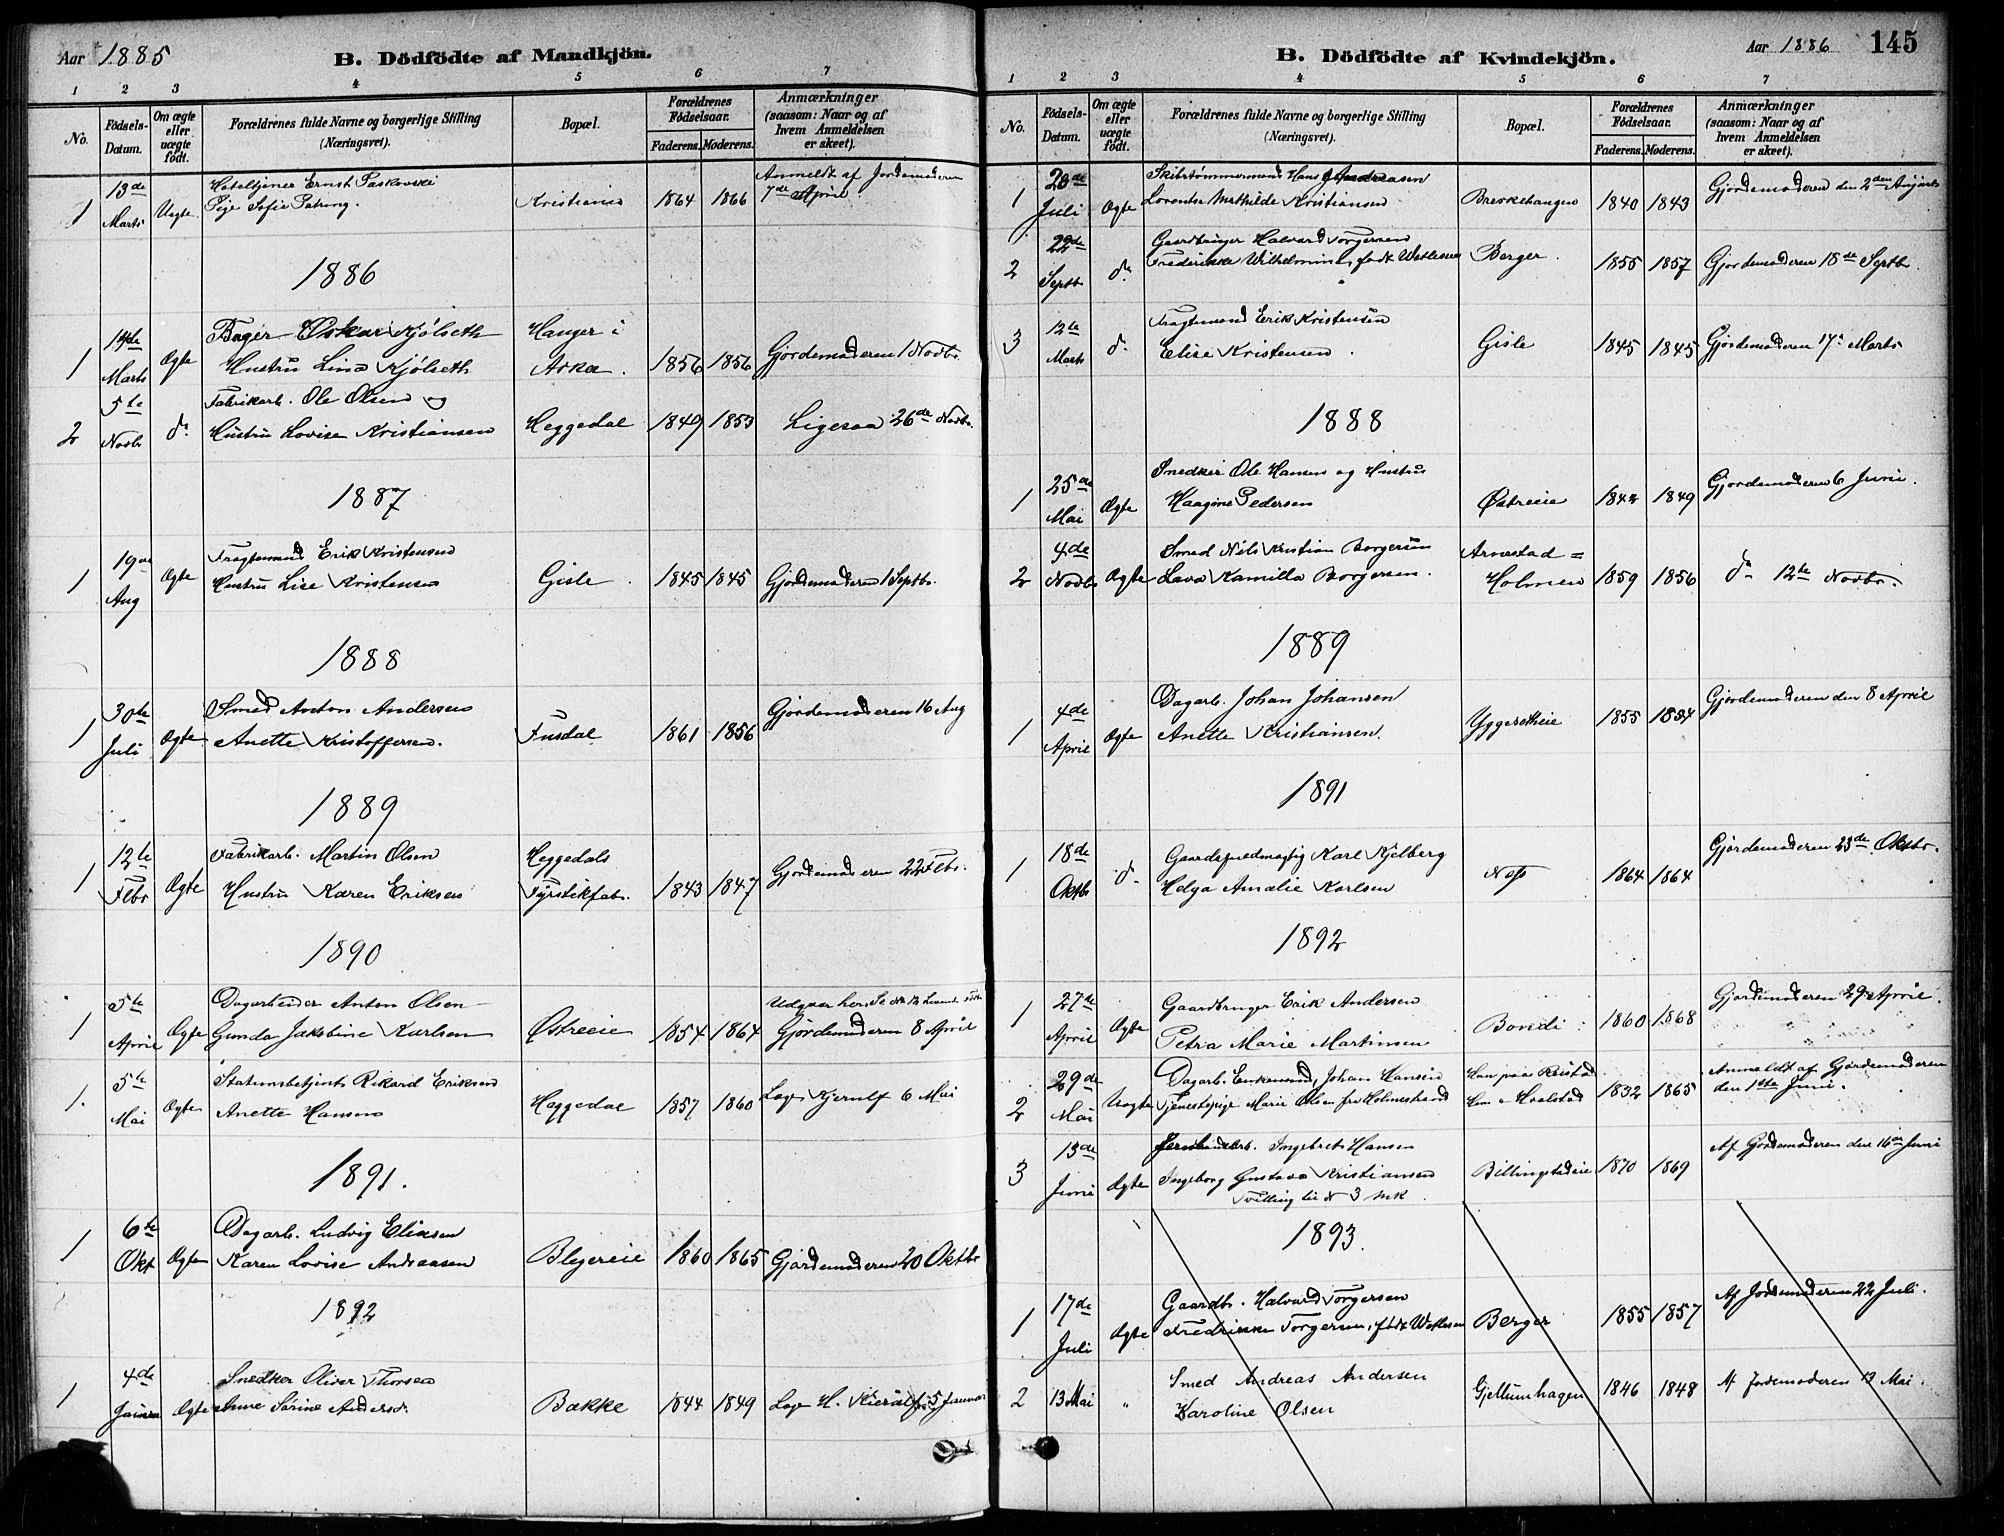 Aar 1885
B. Dödfödte af Mandkjön.
1 2 3 4 5 6 7
No.
Födsels-Datum.
Om ægte eller uægte födt.
Forældrenes fulde Navne og borgerlige Stilling (Næringsvei).
Bopæl.
Forældrenes Födselsaar.
Faderens. Moderens.
Anmærkninger (saasom: Naar og af hvem Anmeldelsen er skeet).
1 13de Marts Uegte Hoteltjener Ernst Paskovski
Pige Sofie Kristiania 1864 1866 Anmeldt af Jordemoderen 7de April
1886
1 14de Marts Ogte Bager Oskar Kjølseth
Hustru Lina Kjølseth Hauger i Asker 1856 1856 Gjordemoderen 1 Novbr.
2 5te Novbr do Fabrikarb. Ole Olsen og
Hustru Lovise Kristiansen Heggedal 1849 1853 Ligesaa 26de Novbr.
1887
1 19de Aug Ogte Fragtemand Erik Kristensen
Hustru Lise Kristensen Gisle 1845 1845 Gjordemoderen 1 Septbr.
1888
1 30te Juli Ogte Smed Anton Andersen
Anette Kristoffersen. Fusdal 1861 1856 Gjordemoderen 16 Aug
1889
1 12te Febr Ogte Fabrikarb. Martin Olsen
Hustru Karen Eriksen Heggedals Fyrstikfabr. 1843 1847 Gjordemoderen 22 Febr.
1890
1 5te April Ogte Dagarbeider Anton Olsen
Gunda Jakobine Karlsen Østreeie 1854 1864 Udgaar her. Se
Gjordemoderen 8 April
1. 5te Mai Ogte Stationsbetjent Rikard Eriksen
Anette Hansen Heggedal 1857 1860 Læge Kjerulf 6 Mai
1891.
1 6te Okt Ogte Dagarb. Ludvig Eliasen
Karen Lovise Andreasen Blegereie 1860 1865 Gjordemoderen 20 Oktbr
1892
1 4de Januar Ogte Snedker Oliver Thorsen
Anne Sörine Andersd. Bakke 1844 1849 Læge H. Kierulf 5 Januar
Aar 1886 145
B. Dödfödte af Kvindekjön.
1 2 3 4 5 6 7
No.
Födsels-Datum.
Om ægte eller uægte födt.
Forældrenes fulde Navne og borgerlige Stilling (Næringsvei).
Bopæl.
Forældrenes Födselsaar.
Faderens. Moderens.
Anmærkninger (saasom: Naar og af hvem Anmeldelsen er skeet).
1 28de Juli Ogte Skibstømmermand Hans Andreasen
Lorentse Mathilde Kristiansen Brækkehangen 1840 1843 Gjordemoderen den 2den August
2 22de Septb do Gaardbruger Halvard Torgersen
Frederikke Wilhelmine, født Wetlesen Berger 1855 1857 Gjordemoderen 18de Septb.
3 12te Marts do Fragtemand Erik Kristensen
Elise Kristensen. Gisle 1845 1845 Gjordemoderen 17de Marts
1888
1 25de Mai Ogte Snedker Ole Hansen og Hustru
Haagine Pedersen Østreeie 1849 Gjordemoderen 6 Juni.
2 4de Novbr Ogte Smed Nils Kristian Borgersen
Lava Kamilla Borgersen. Arnestad=Holmen 1859 1856 do 12te Novbr.
1889
1 4de April Ogte Dagarb. Johan Johansen
Anette Kristiansen. Yggeseteie 1855 1854 Gjordemoderen den 8 April
1891
1 18de Oktbr do Gaardsfuldmægtig Karl Kjelberg
Helga Amalie Karlsen Nes 1864 1864 Gjordemoderen 23de Oktbr.
1892
1 27de April Ogte Gaardbruger Erik Andersen
Petra Marie Martinsen Bondi 1860 1868 Gjordemoderen 29 April.
2 29de Mai Uægte Dagarb. Enkemand, Johan Hansen
Tjenestepige Marie Olsen fra Holmestrand Han paa Reistad
Hun Hvalstad 1832 1865 Anmeldt af Gjordemoderen den 1ste Juni.
3 13de Juni Ogte Jernbanearb. Ingebret Hansen
Ingeborg Gustava Kristiansen
Tvilling til No 3 mk. Billingstadeie 1870 1869 Af Gjordemoderen den 16de Juni
1893.
1 17de Juli Ogte Gaardbr. Halvard Torgersen
Fredrikke Torgersen, født Wetlesen Berger 1855 1857 Af Jordemoderen 22 Juli.
2 13 Mai " Smed Andreas Andersen
Karoline Olsen Gjellumhagen 1846 1848 Af Jordemoderen 13 Mai.